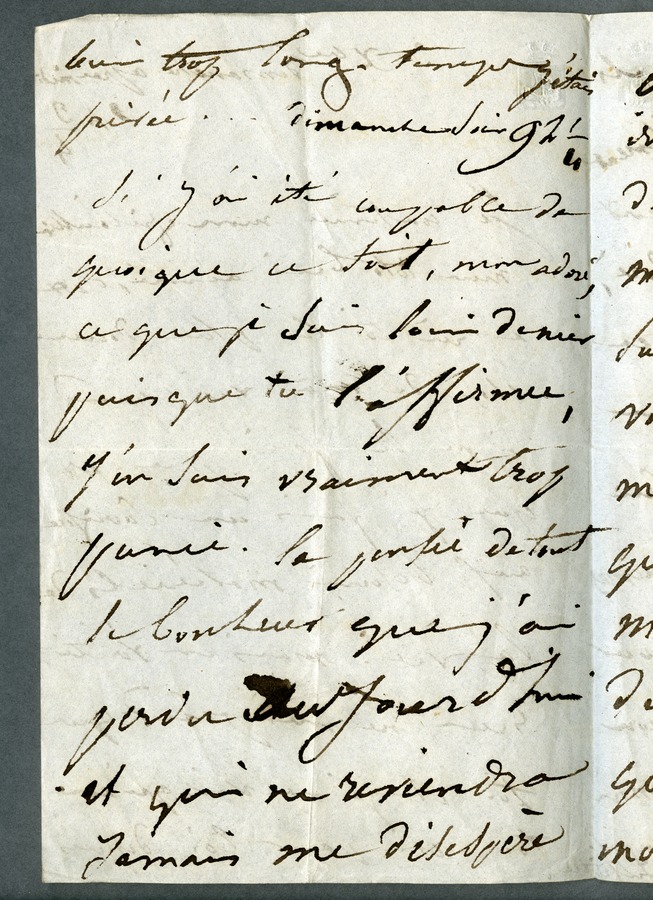 trop long-temps j'étais
pressée... dimanche soir 9 h 1/4
Si j'ai été coupable de
quoique ce soit, mon adoré,
ce que je suis loin de nier
puisque tu l'affirmes,
j'en suis vraiment trop
punie. la pensée de tout
le bonheur que j'ai
perdu aujourd'hui
et qui ne reviendra
jamais me désespère